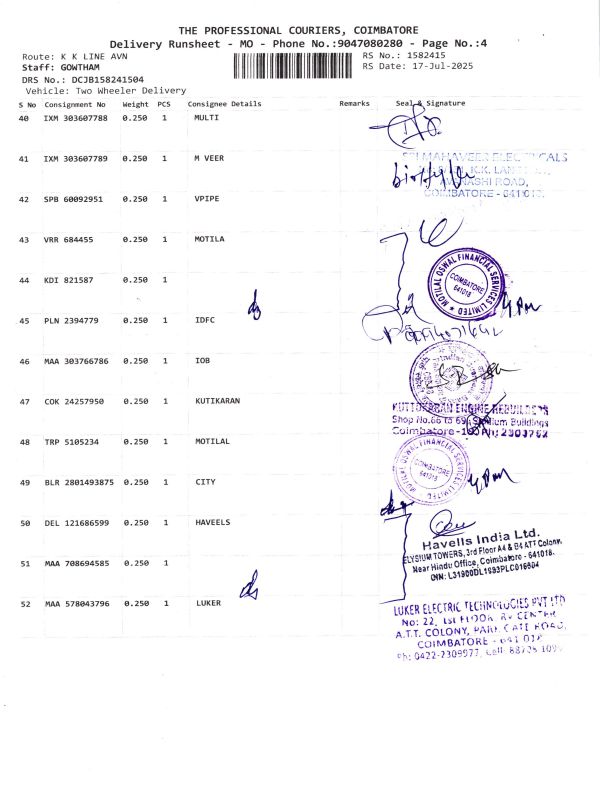 THE PROFESSIONAL COURIERS, COIMBATORE
Delivery Runsheet - MO - Phone No.:9047080280 - Page No.:4
Route: K K LINE AVN
Staff: GOWTHAM
DRS No.: DCJB158241504
Vehicle: Two Wheeler Delivery
RS No.: 1582415
RS Date: 17-Jul-2025
S No Consignment No Weight PCS Consignee Details Remarks Seal & Signature
40 IXM 303607788 0.250 1 MULTI
41 IXM 303607789 0.250 1 M VEER
SRI MAHAVEER ELECTRICALS
AVINASHI ROAD,
COIMBATORE - 641 018.
42 SPB 60092951 0.250 1 VPIPE
43 VRR 684455 0.250 1 MOTILA
44 KDI 821587 0.250 1
MOTILAL OSWAL FINANCIAL SERVICES LIMITED
COIMBATORE
641018
45 PLN 2394779 0.250 1 IDFC
46 MAA 303766786 0.250 1 IOB
47 COK 24257950 0.250 1 KUTIKARAN
KUTTUKARAN ENGINE REBUILDERS
Shop No.66 to 69, Stadium Buildings
Coimbatore-
48 TRP 5105234 0.250 1 MOTILAL
MOTILAL OSWAL FINANCIAL SERVICES LIMITED
COIMBATORE
641018
49 BLR 2801493875 0.250 1 CITY
50 DEL 121686599 0.250 1 HAVEELS
Havells India Ltd.
ELYSIUM TOWERS, 3rd Floor A4 & B4 ATT Colony,
Near Hindu Office, Coimbatore - 641018.
CIN: L31900DL1983PLC016604
51 MAA 708694585 0.250 1
52 MAA 578043796 0.250 1 LUKER
LUKER ELECTRIC TECHNOLOGIES PVT LTD
No: 22, 1st FLOOR, RV CENTER
A.T.T. COLONY, PARK GATE ROAD,
COIMBATORE - 641 018
Ph: 0422-2309977, Cell: